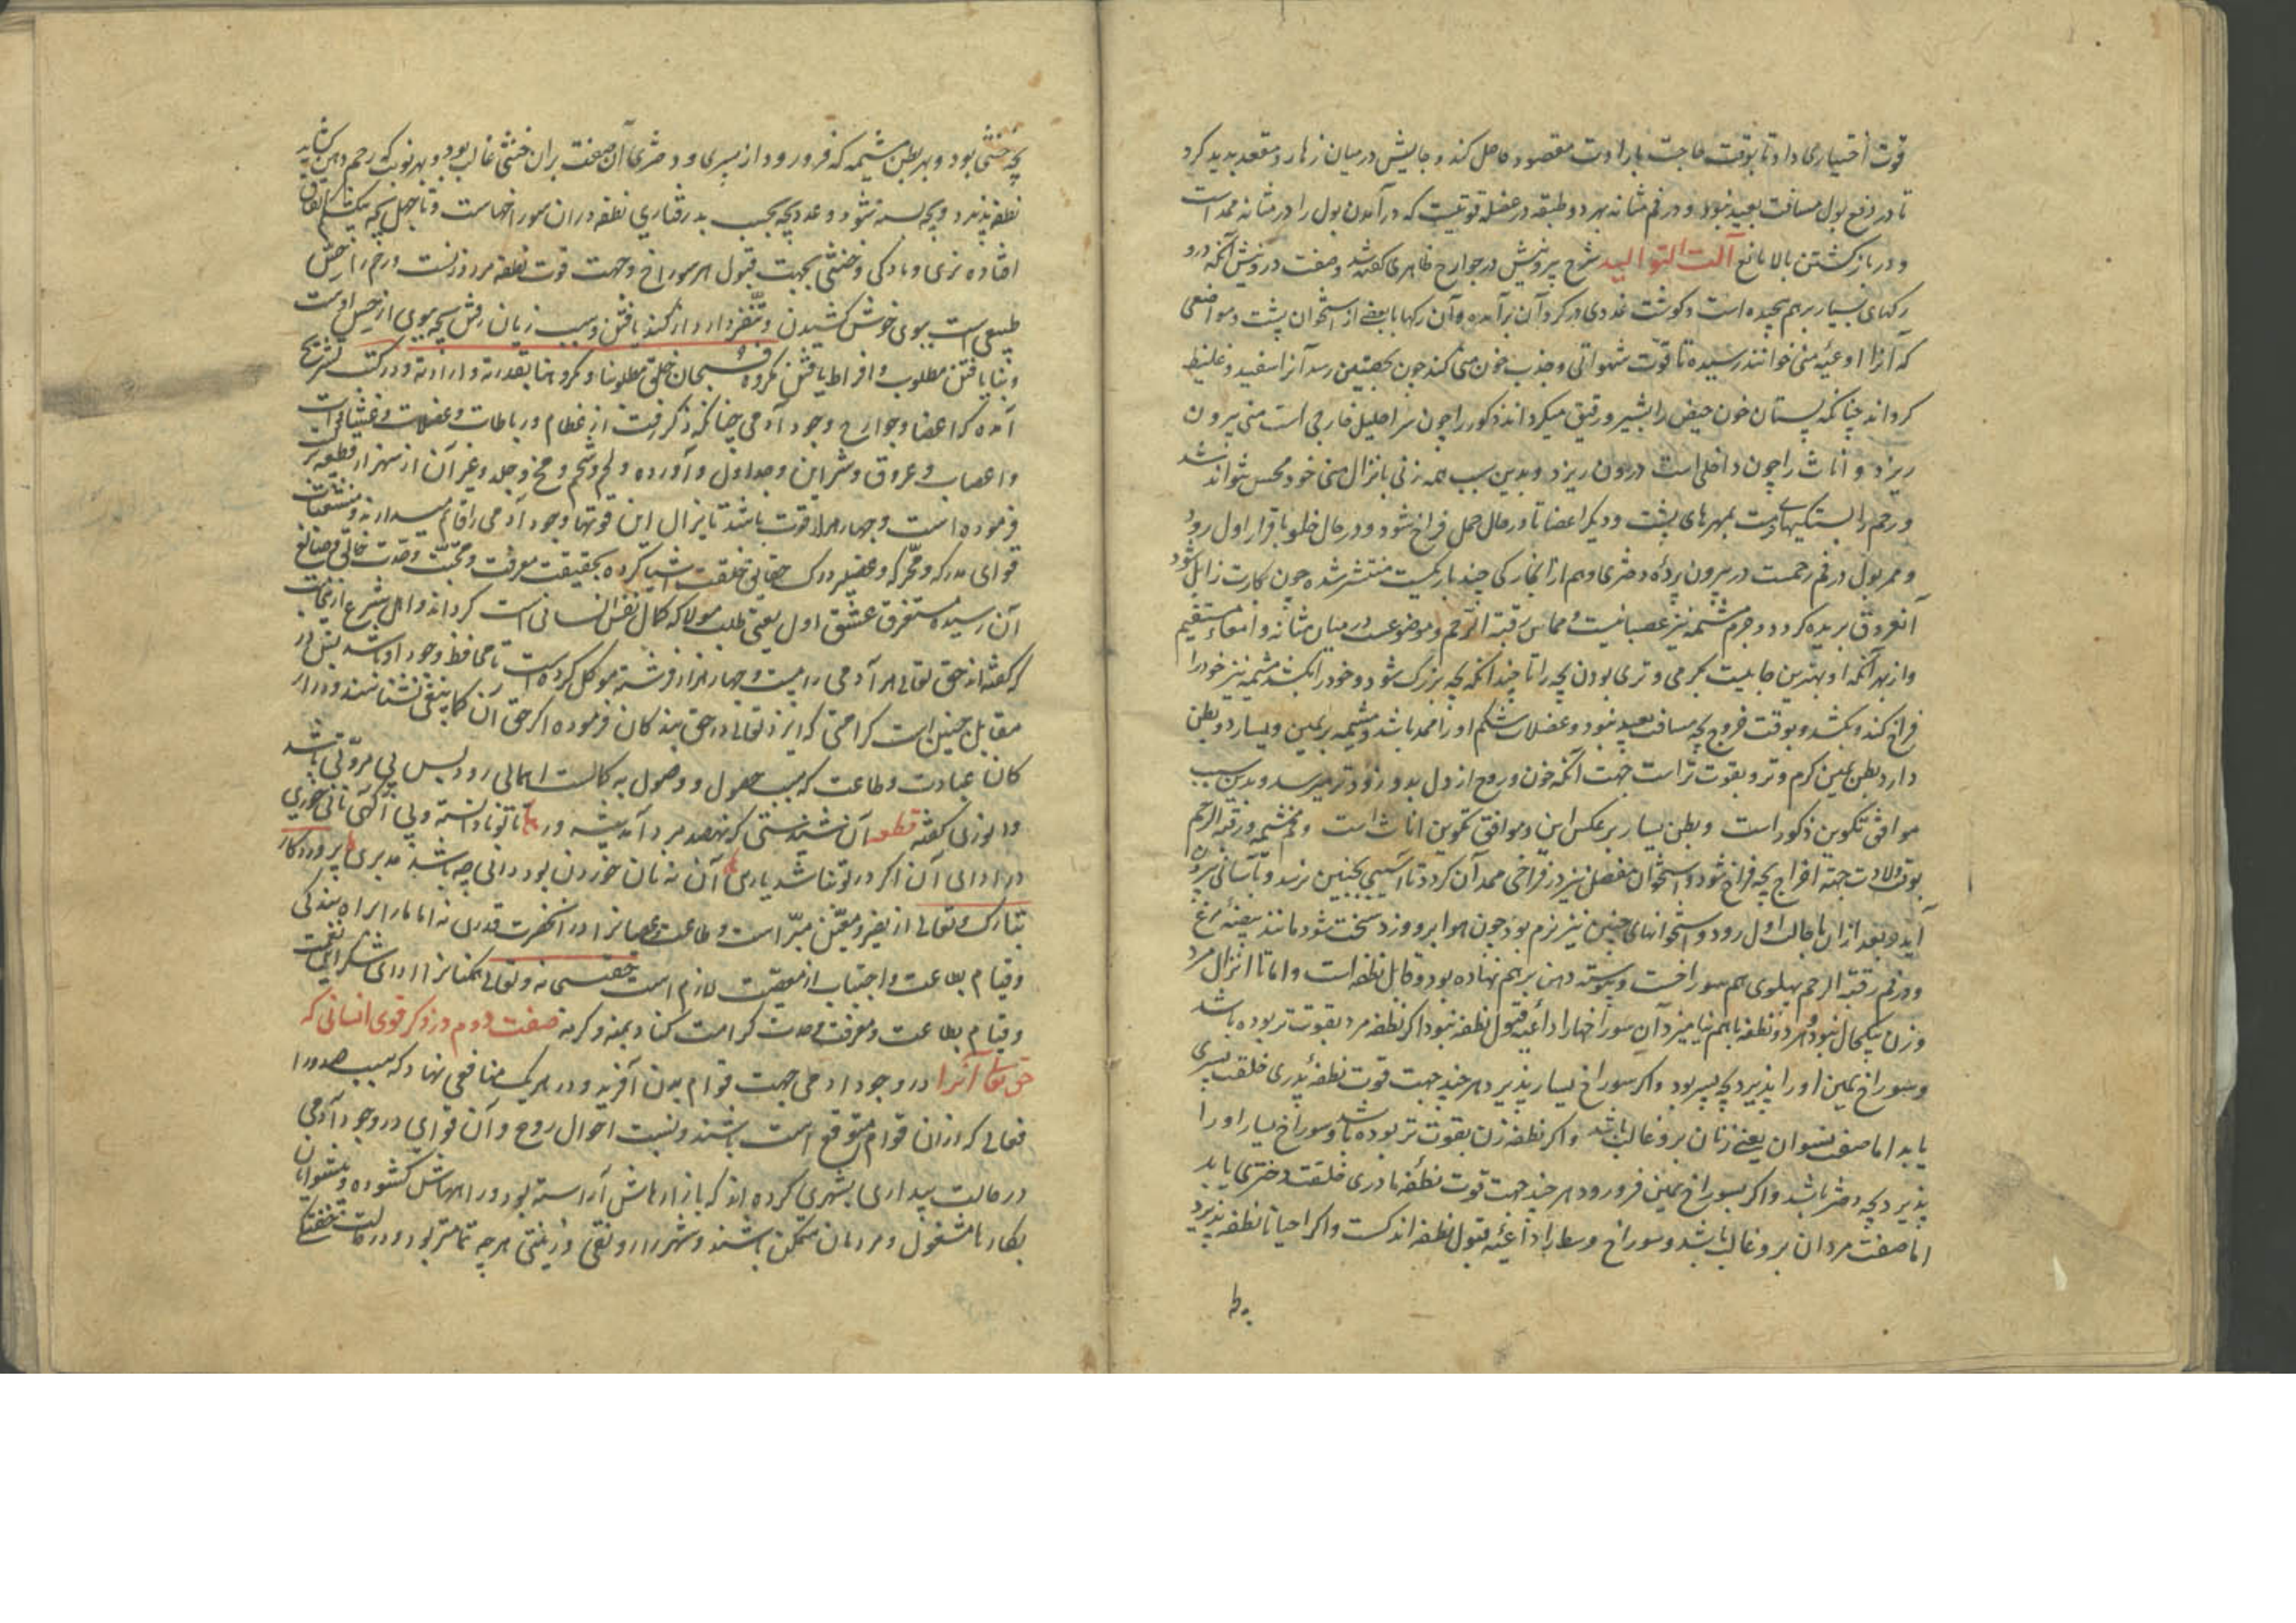 قوت اختیاری داد تا بوقت حاجت بارادت مقصود حاصل کند و جایش در میان زهار و مقعد پدید کرد
تا در دفع بول مسافت بعید نبود و در فم مثانه بهر دو طبقه در عضله قوتیست که در آمدن بول را در مثانه ممد است
و در باز گشتن بالا مانع آلت التوالید شرح بیرونیش در جوارح ظاهری گفته شد و صفت درونیش آنکه درو
رگهای بسیار برهم پیچیده است و گوشت غددی در گرد آن برآمده و آن رگها با بعضی از استخوان پشت و مواضعی
که آنرا اوعیه منی خوانند رسیده تا قوت شهوانی و جذب خون منی کند چون بخصیتین رسد آنرا سفید و غلیظ
گرداند چنانکه پستان خون حیض را بشیر و رقیق میگرداند ذکور را چون سر احلیل خارجی است منی بیرون
ریزد و اناث را چون داخلی است درون ریزد و بدین سبب همه زنی بانزال منی خود محس نتواند شد
و رحم را بستگیهای است بمهرهای پشت و دیگر اعضا تا در حال حمل فراخ شود و در حال خلو با قرار اول رود
و ممر بول در فم رحمست در بیرون پرده دختری و هم از آنجا رگی چند باریکست منتشر شده چون بکارت زایل شود
آن عروق بریده گردد و جرم مشیمه نیز عصبانیست و مماس رقبة الرحم و موضوعست در میان مثانه و امعاء مستقیم
و از بهر آنکه او بهترین جائیست بگرمی و تری بودن بچه را تا چندانکه بچه بزرگ شود و خود را بکشد مشیمه نیز خود را
فراخ کند و بکشد و بوقت خروج بچه مسافت بعید نبود و عضلات شکم او را ممد باشد و مشیمه بر یمین و یسار دو بطن
دارد بطن یمین گرم و تر و بقوت تر است جهت آنکه خون و روح از دل بدو زودتر میرسد و بدین سبب
موافق تکوین ذکور است و بطن یسار بر عکس این و موافق تکوین اناث است و فم مشیمه و رقبة الرحم
بوقت ولادت جهة اخراج بچه فراخ شود و استخوان مفصل نیز در فراخی ممد آن گردد تا آسیبی بجنین نرسد و بآسانی بیرون
آید و بعد از آن با حالت اول رود و استخوانهای جنین نیز نرم بود چون هوا برو وزد سخت شود مانند بیضه مرغ
و در فم رقبة الرحم پهلوی هم سوراخست و پیوسته دهن برهم نهاده بود و قابل نطفه است و اما تا انزال مرد
و زن بیکحال نبود و هر دو نطفه باهم نیامیزد آن سوراخها را داعیه قبول نطفه نبود اگر نطفه مرد بقوت تر بوده باشد
و سوراخ یمین او را پذیرد بچه پسر بود و اگر سوراخ یسار پذیرد هر چند جهت قوت نطفه پدری خلقت پسری
یابد اما صفت نسوان یعنی زنان برو غالب باشد و اگر نطفه زن بقوت تر بوده باشد و سوراخ یسار او را
پذیرد بچه دختر باشد و اگر بسوراخ یمین فرو رود هر چند جهت قوت نطفه مادری خلقت دختری یابد
اما صفت مردان برو غالب باشد و سوراخ وسط را داعیه قبول نطفه اندکست و اگر احیانا نطفه پذیرد
بچه خنثی بود و بهر بطن مشیمه که فرو رود از پسری و دختری آن صفت بران خنثی غالب بود و بهر نوبت که رحم دهن
نطفه پذیرد و بچه بسته شود و عدد بچه بحسب بدرقتاری نطفه در آن سوراخهاست و تا چهل بچه بیک شکم اتفاق
افتاده نری و مادگی و خنثی بجهت قبول هر سوراخ و جهت قوت نطفه مرد و زنست و رحم را از حس
طبیعی است ببوی خوش کشیدن و تنفر دارد از گند یافتن و سبب زیان رفتن بچه ببوی از حس اوست
و بنا یافتن مطلوب و افراط یافتن مکروه فسبحان خلق مطلوبنا و مکروهنا بقدرته و ارادته و در کتب تشریح
آمده که اعضا و جوارح وجود آدمی چنانکه ذکر رفت از عظام و رباطات و عضلات و غشیات
و اعصاب و عروق و شرایین و جداول و آورده و لحم و شحم و مخ و جلد و غیر آن از سه هزار قطعه
فرموده است و چهار هزار قوت باشد تا یزال این قوتها وجود آدمی را قائم میدارند و
قوای مدرکه و محرکه و عضلی درک حقایق خلقت اشیا کرده بحقیقت معرفت و محبت وحدت خالق و صانع
آن رسیده مستغرق عشق اول یعنی طلب مولا که کمال نفس انسانی است گرداند و اهل شرع
گفته اند حق تعالی هر آدمی را بیست و چهار هزار فرشته موکل کرده است تا محافظ وجود او باشد پس در
مقابل چنین است کرامتی که ایزد تعالی در حق بندگان فرموده اگر حق آن کما ینبغی نشناسند و در ادا
کان عبادت و طاعت که سبب حصول و وصول به کمالست اهمالی رود بس بی مروتی باشد
و انوری گفته قطعه آن نشیدستی که نهصد مرد آید پیشه ور تا تو نادانسته و بی آگهی نانی خوری
در ادای آن اگر در تو نباشد یاری آن نه نان خوردن بود دانی چه باشد مدبری پروردگار
تبارک و تعالی از تغیر و معین مبرا است و طاعت و عصیان را در آن حضرت قدری نه اما ما را براه بندگی
و قیام بطاعت و اجتناب از معصیت لازم است حق سبحانه و تعالی همگنان را ادای شکر این نعمت
و قیام بطاعت و معرفت وحدت کرامت کناد بمنه و کرمه صفت دوم در ذکر قوی انسانی که
حق تعالی آنرا در وجود آدمی جهت قوام بدن آفریده و در هر یک منافعی نهاد که سبب صدور
فعالی که از آن قوام متوقع است باشند و نسبت احوال روح و آن قوای در وجود آدمی
در حالت بیداری بشهری کرده اند که بازارهاش آراسته بود و راههاش گشوده و پیشه وران
بکارها مشغول و مردمان متمکن باشند و شهر را رونقی و زینتی هر چه تمامتر بود و در حالت خفتگی